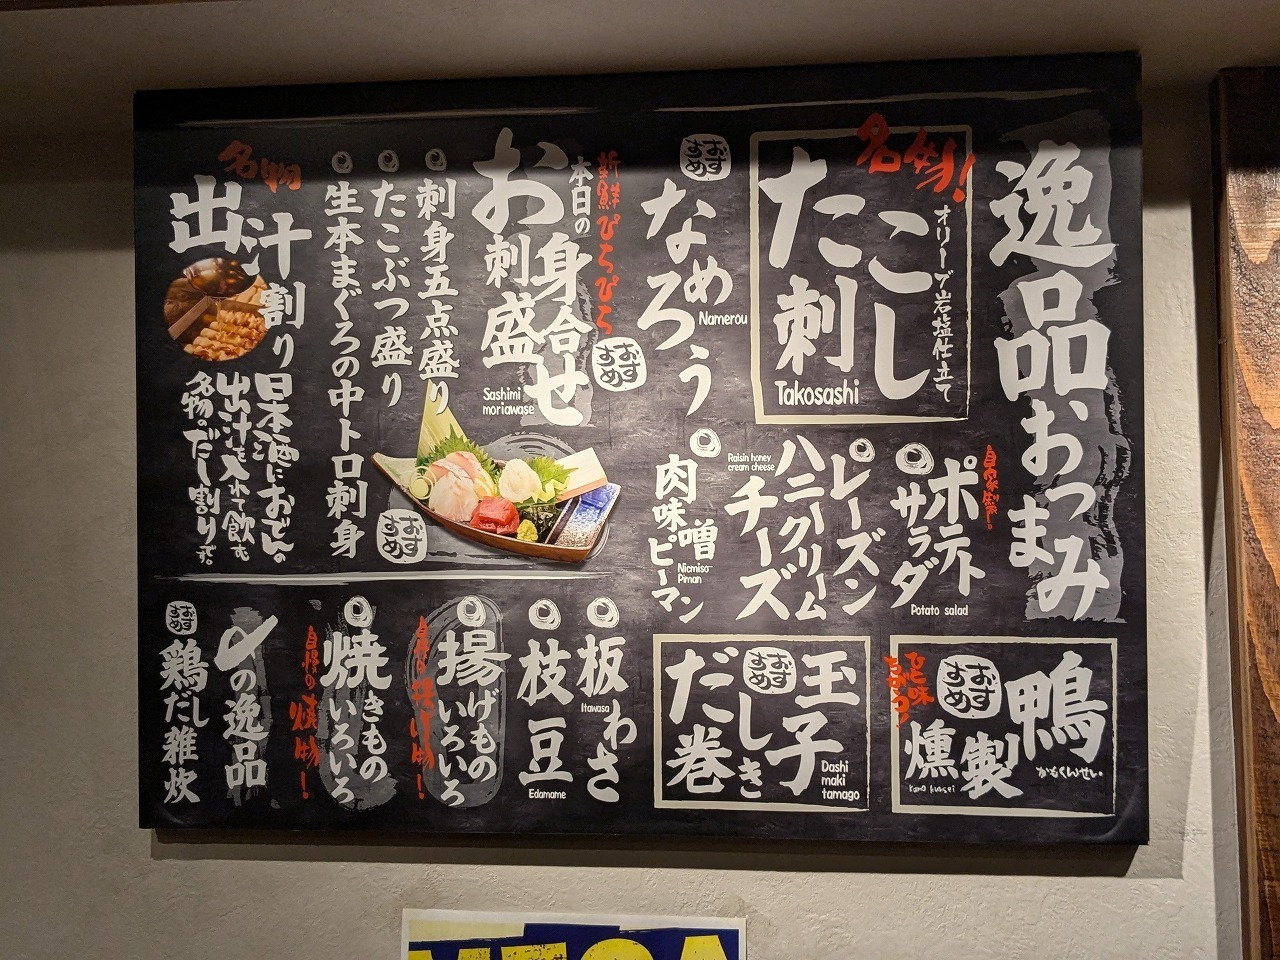 逸品おつまみ
名物!
たこ刺し
オリーブ岩塩仕立て
Takosashi
おすすめ
なめろう
Namerou
自家製!
ポテトサラダ
Potato salad
レーズンハニークリームチーズ
Raisin honey
cream cheese
肉味噌ピーマン
Nicmiso-
Piman
鴨燻製
おすすめ
かもくんせい
Kamo kunsei
玉子だし巻き
おすすめ
Dashi
maki
tamago
新鮮ぴちぴち
本日の
お刺身盛合せ
おすすめ
Sashimi
moriawase
刺身五点盛り
たこぶつ盛り
生本まぐろの中トロ刺身
おすすめ
名物
出汁割り
日本酒におでんの
出汁を入れて飲む
名物のだし割りです。
板わさ
Itawasa
枝豆
Edamame
揚げものいろいろ
焼きものいろいろ
自慢の焼物!
〆の逸品
おすすめ
鶏だし雑炊